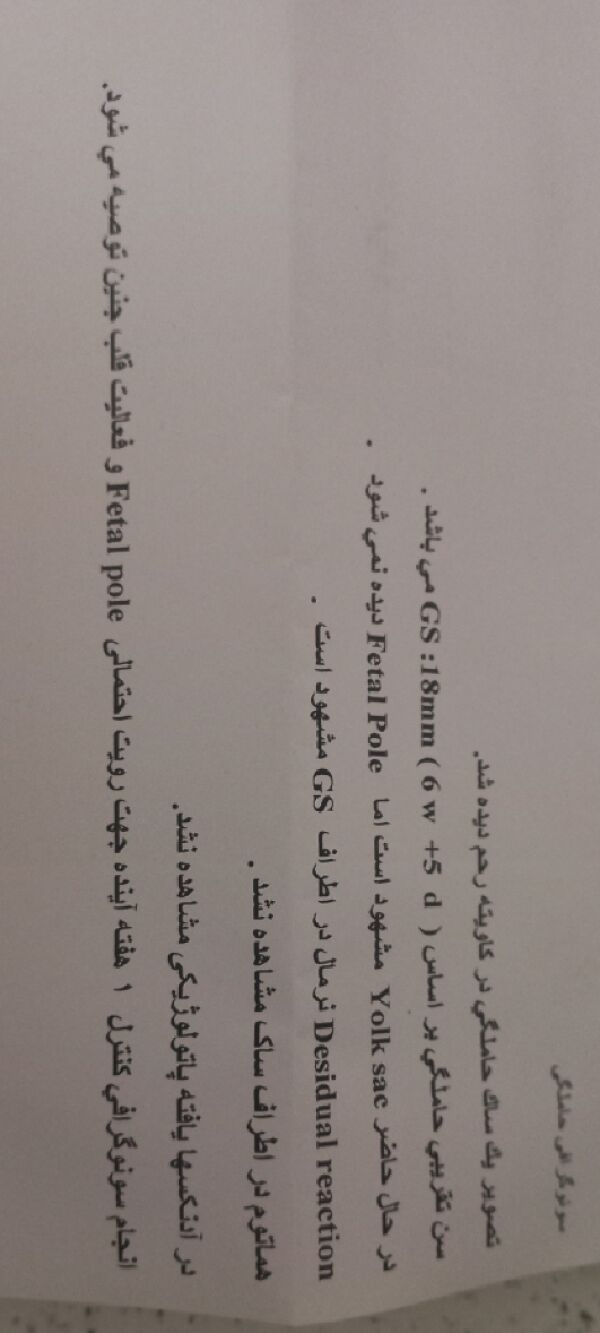 سونوگرافی حاملگی
تصویر یک ساک حاملگي در کاویته رحم دیده شد.
سن تقریبی حاملگي بر اساس GS :18mm ( 6 w +5 d ) مي باشد .
در حال حاضر Yolk sac مشهود است اما Fetal Pole دیده نمي شود .
Desidual reaction نرمال در اطراف GS مشهود است .
هماتوم در اطراف ساک مشاهده نشد .
در آدنکسها یافته پاتولوژیکی مشاهده نشد.
انجام سونوگرافي کنترل ۱ هفته آینده جهت رویت احتمالی Fetal pole و فعالیت قلب جنین توصیه مي شود.